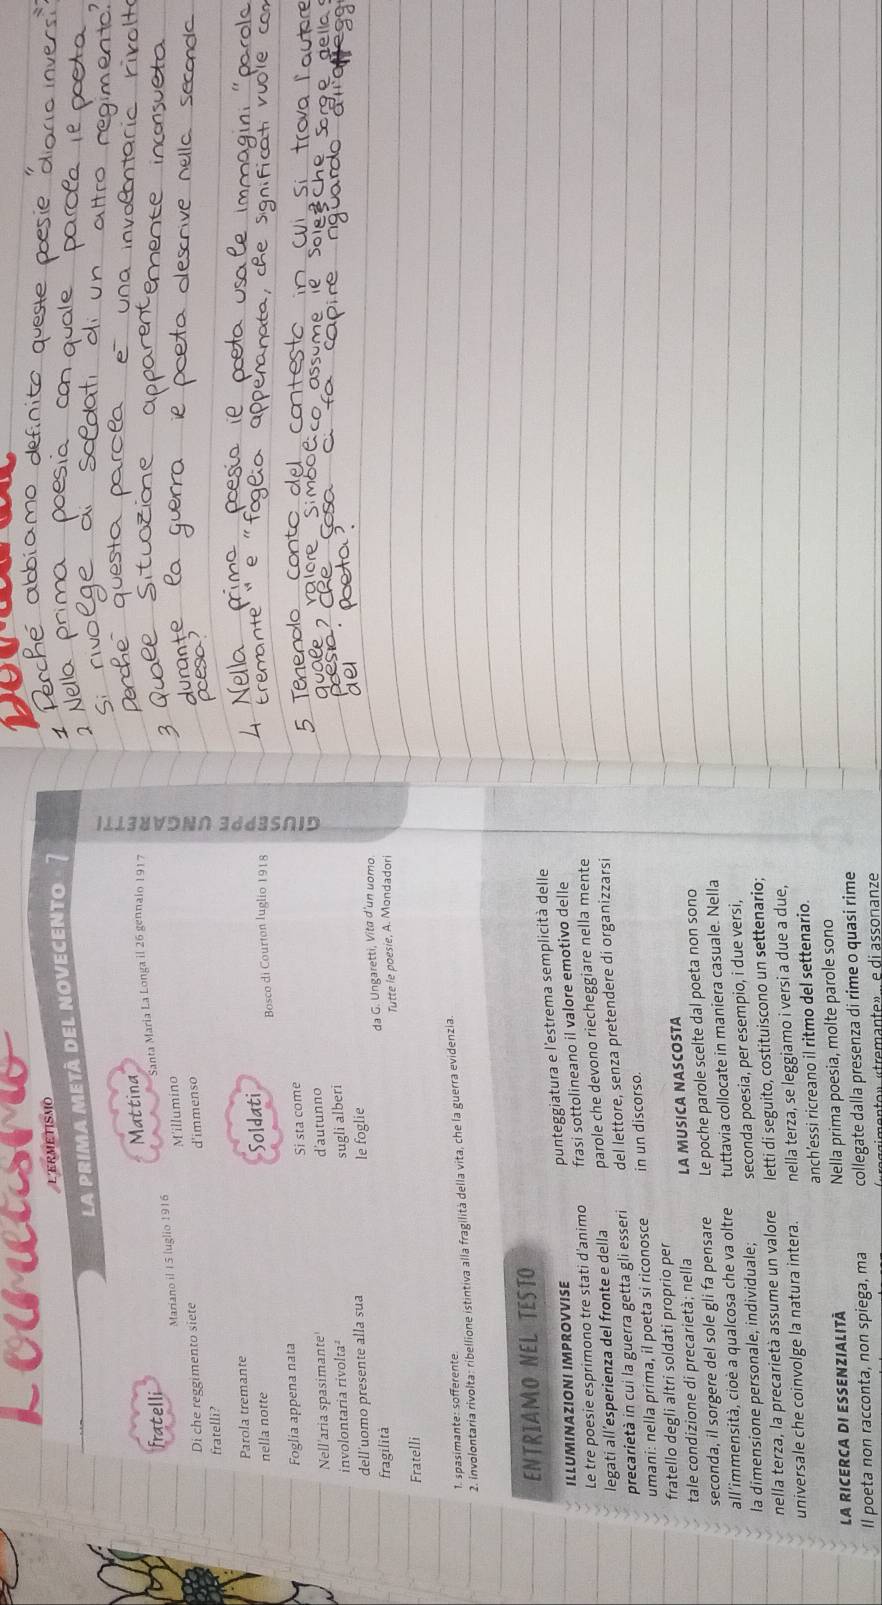 L'ourmetismo
L'ERMETISMO
LA PRIMA METÀ DEL NOVECENTO 7
GIUSEPPE UNGARETTI
Fratelli
Mariano il 15 luglio 1916
Di che reggimento siete
fratelli?
Parola tremante
nella notte
Foglia appena nata
Nell'aria spasimante¹
involontaria rivolta²
dell'uomo presente alla sua
fragilità
Fratelli
Mattina
Santa Maria La Longa il 26 gennaio 1917
M'illumino
d'immenso
Soldati
Bosco di Courton luglio 1918
Si sta come
d'autunno
sugli alberi
le foglie
da G. Ungaretti, Vita d'un uomo.
Tutte le poesie, A. Mondadori
1. spasimante: sofferente.
2. involontaria rivolta: ribellione istintiva alla fragilità della vita, che la guerra evidenzia.
ENTRIAMO NEL TESTO
ILLUMINAZIONI IMPROVVISE
Le tre poesie esprimono tre stati d'animo
legati all'esperienza del fronte e della
precarietà in cui la guerra getta gli esseri
umani: nella prima, il poeta si riconosce
fratello degli altri soldati proprio per
tale condizione di precarietà; nella
seconda, il sorgere del sole gli fa pensare
all'immensità, cioè a qualcosa che va oltre
la dimensione personale, individuale;
nella terza, la precarietà assume un valore
universale che coinvolge la natura intera.
LA RICERCA DI ESSENZIALITÀ
Il poeta non racconta, non spiega, ma
punteggiatura e l'estrema semplicità delle
frasi sottolineano il valore emotivo delle
parole che devono riecheggiare nella mente
del lettore, senza pretendere di organizzarsi
in un discorso.
LA MUSICA NASCOSTA
Le poche parole scelte dal poeta non sono
tuttavia collocate in maniera casuale. Nella
seconda poesia, per esempio, i due versi,
letti di seguito, costituiscono un settenario;
nella terza, se leggiamo i versi a due a due,
anch'essi ricreano il ritmo del settenario.
Nella prima poesia, molte parole sono
collegate dalla presenza di rime o quasi rime
«tremante» e di assonanze
1 Perché abbiamo definito queste poesie "diario in versi"?
2 Nella prima poesia con quale parola il poeta
si rivolge ai soldati di un altro regimento?
perché questa parola è una involontaria rivolta
3 Quale situazione apparentemente inconsueta
durante la guerra il poeta descrive nella seconda
poesa?
4 Nella prima poesia il poeta usa le immagini "parola
tremante" e "foglia appenanata, che significati vuole con
5 Tenendo conto del contesto in cui si trova l'autore
quale valore simbolico assume il sole che sorge della
poesia? che cosa ci fa capire riguardo all'
del poeta?